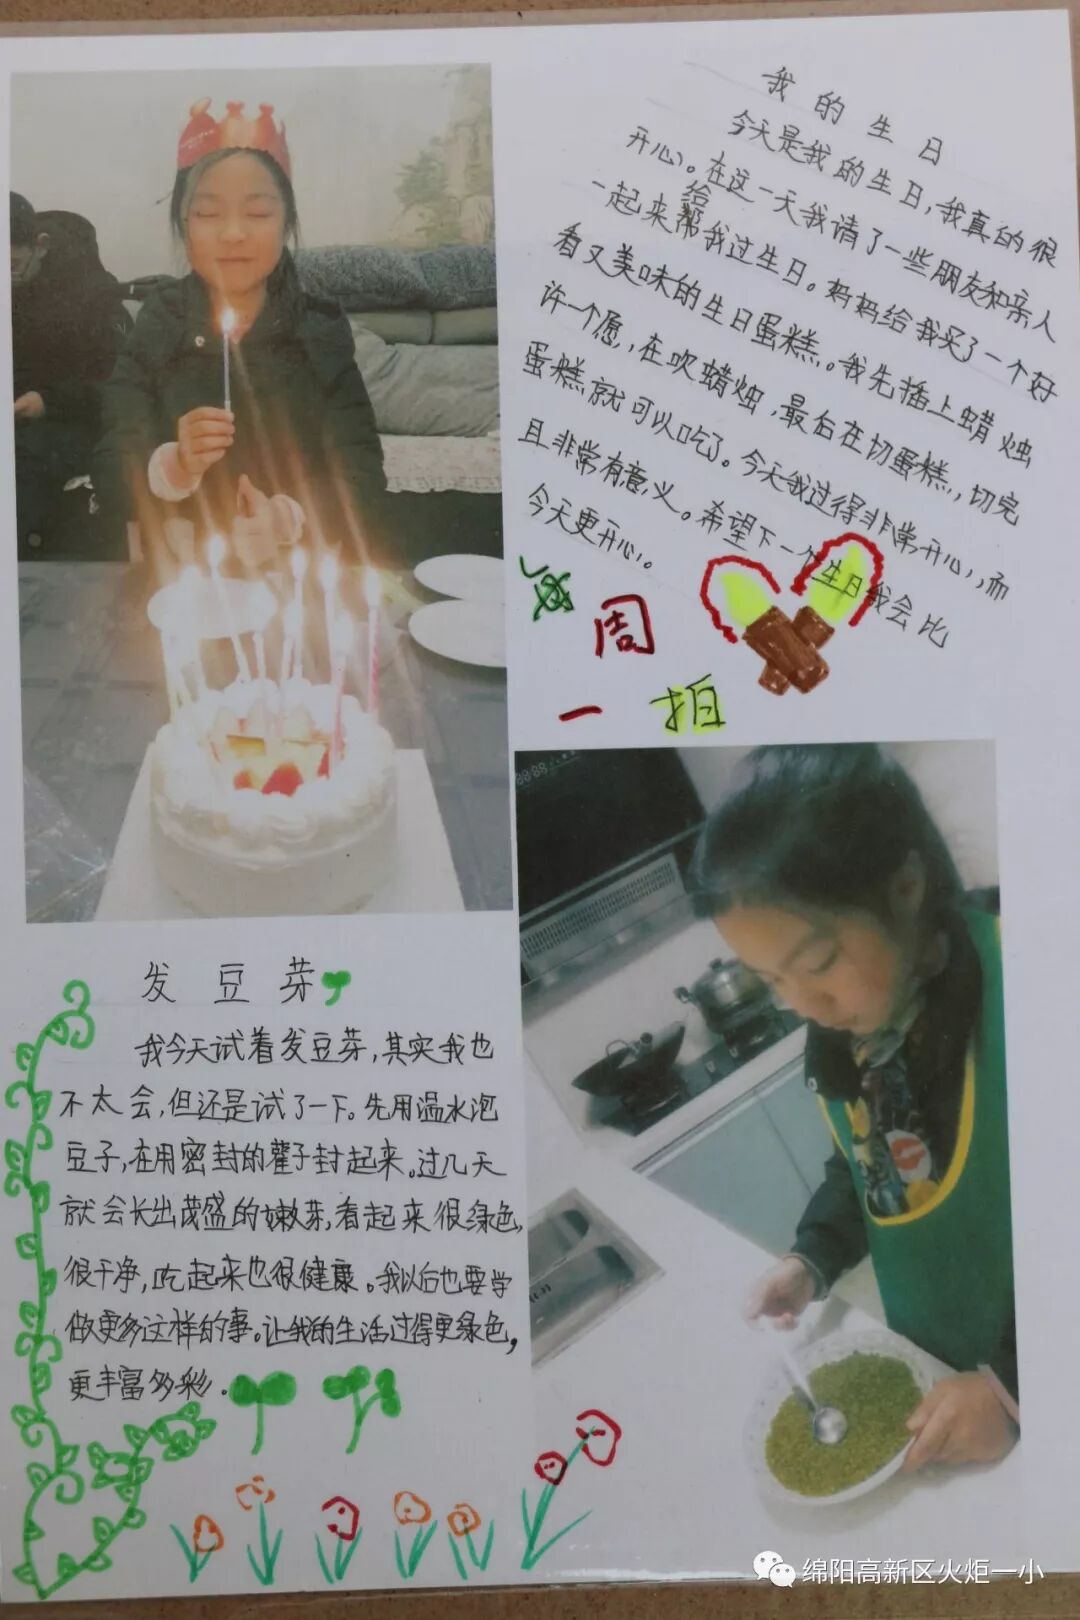 我的生日
今天是我的生日,我真的很
开心。在这一天我请了一些朋友和亲人
一起来给我过生日。妈妈给我买了一个好
看又美味的生日蛋糕。我先插上蜡烛
许一个愿,在吹蜡烛,最后在切蛋糕,切完
蛋糕就可以吃了。今天我过得非常开心,而
且非常有意义。希望下一个生日我会比
今天更开心。
每周
一拍
发豆芽
我今天试着发豆芽,其实我也
不太会,但还是试了一下。先用温水泡
豆子,在用密封的罐子封起来。过几天
就会长出茂盛的嫩芽,看起来很绿色,
很干净,吃起来也很健康。我以后也要学
做更多这样的事。让我的生活过得更绿色,
更丰富多彩.
绵阳高新区火炬一小